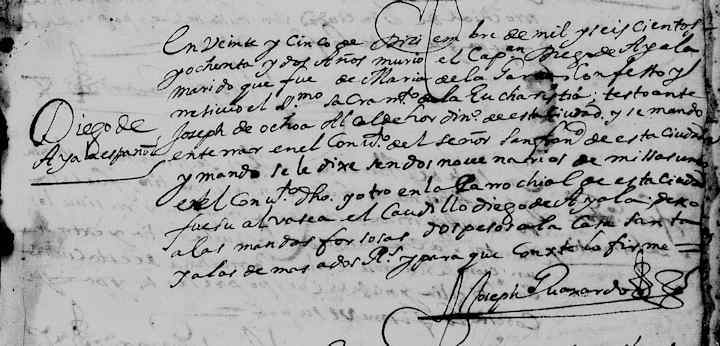 En Veinte y Cinco de Diziembre de mil y seis cientos
y ochenta y dos Años murio el Cap.an Diego de Ayala
Marido que fue de Maria de la Garza Confesso y
resivio el S.mo Sacram.to de la Eucharistia; testo ante
Joseph de ochoa Alcalde hordin.o de esta Ciudad, y se mando
enterrar en el Conv.to del señor San fran.co de esta Ciudad
y mando se le dixesen dos novenarios de missas uno
en el Conv.to dho. y otro en la Parrochial de esta Ciudad
fue su alvasea el Caudillo Diego de Ayala; dexo
a las mandas forsosas dos pesos a la Casa santa
y a las demas a dos R.s y para que conste lo firme
Diego de
Ayala español
Joseph Guaxardo